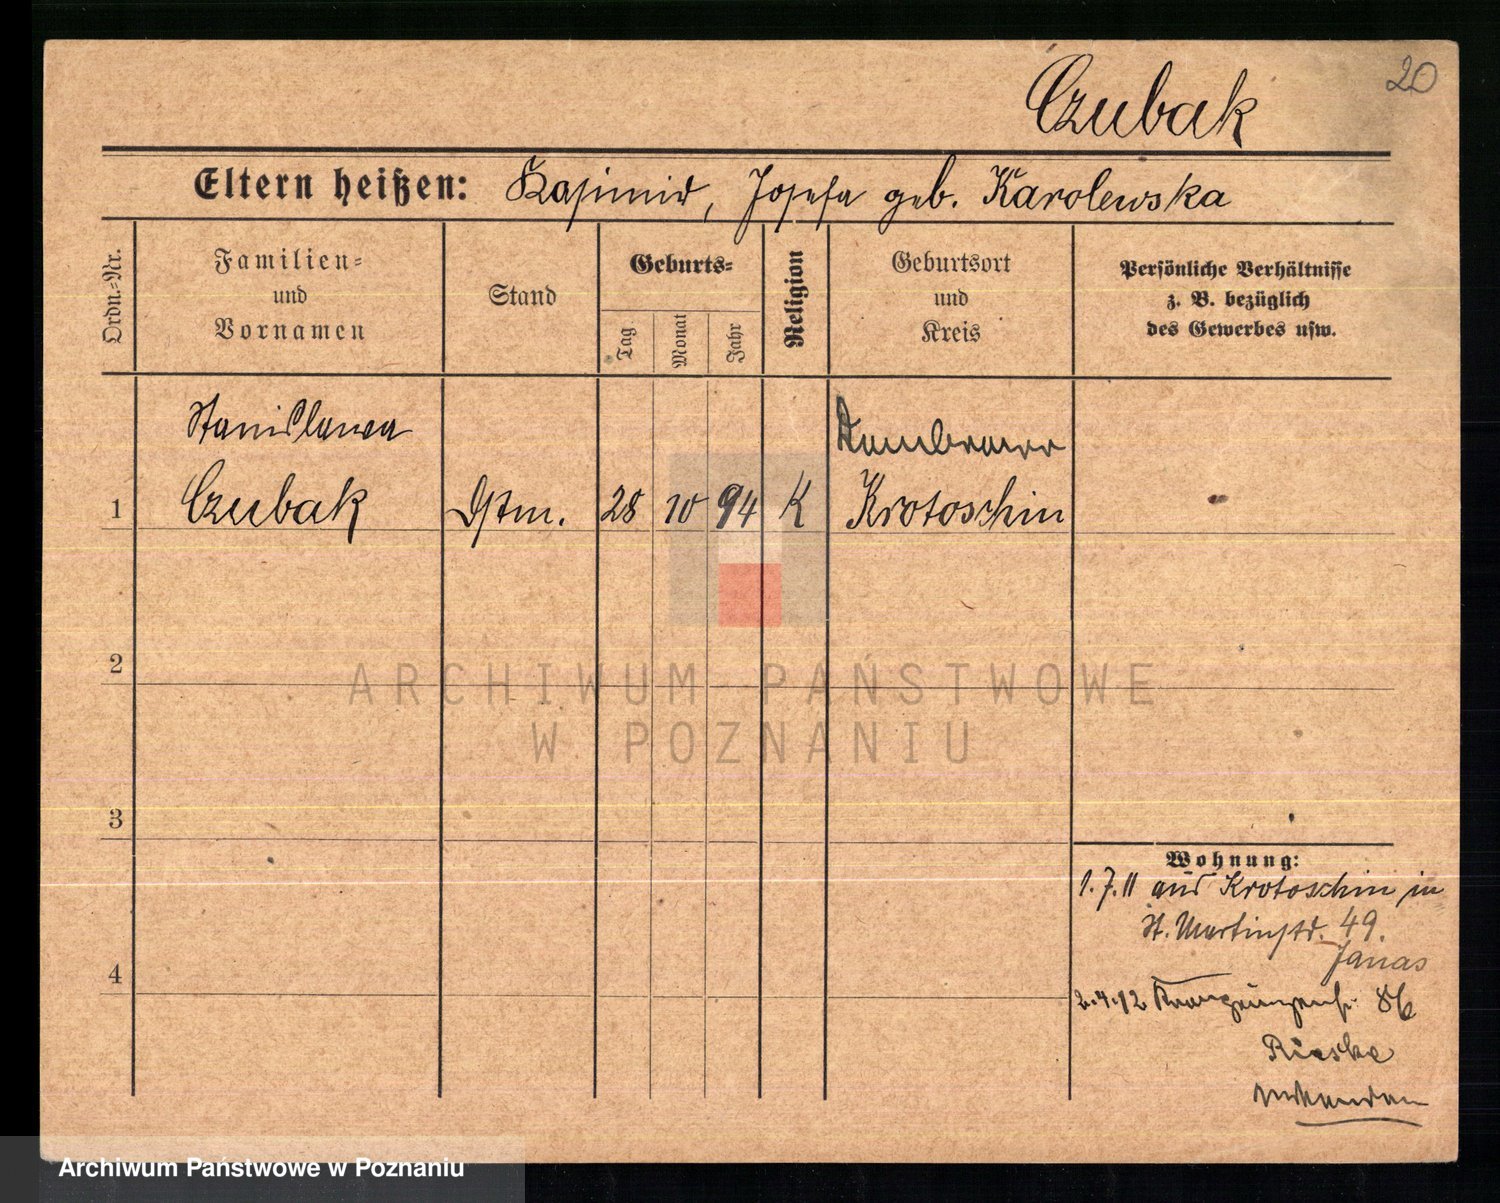 20
Czubak
Eltern heißen: Kasimir, Josefa geb. Karolewska
Ordn.-Nr.
Familien-
und
Vornamen
Stand
Geburts-
Tag
Monat
Jahr
Religion
Geburtsort
und
Kreis
Persönliche Verhältnisse
z. B. bezüglich
des Gewerbes usw.
Stanislawa
Dombrowo
1 Czubak Dstm. 28 10 94 K Krotoschin
2
3
4
ARCHIWUM PAŃSTWOWE
W POZNANIU
Wohnung:
1.7.11 aus Krotoschin in
St. Martinstr. 49.
Janas
2.4.12 86
Rieske
Archiwum Państwowe w Poznaniu